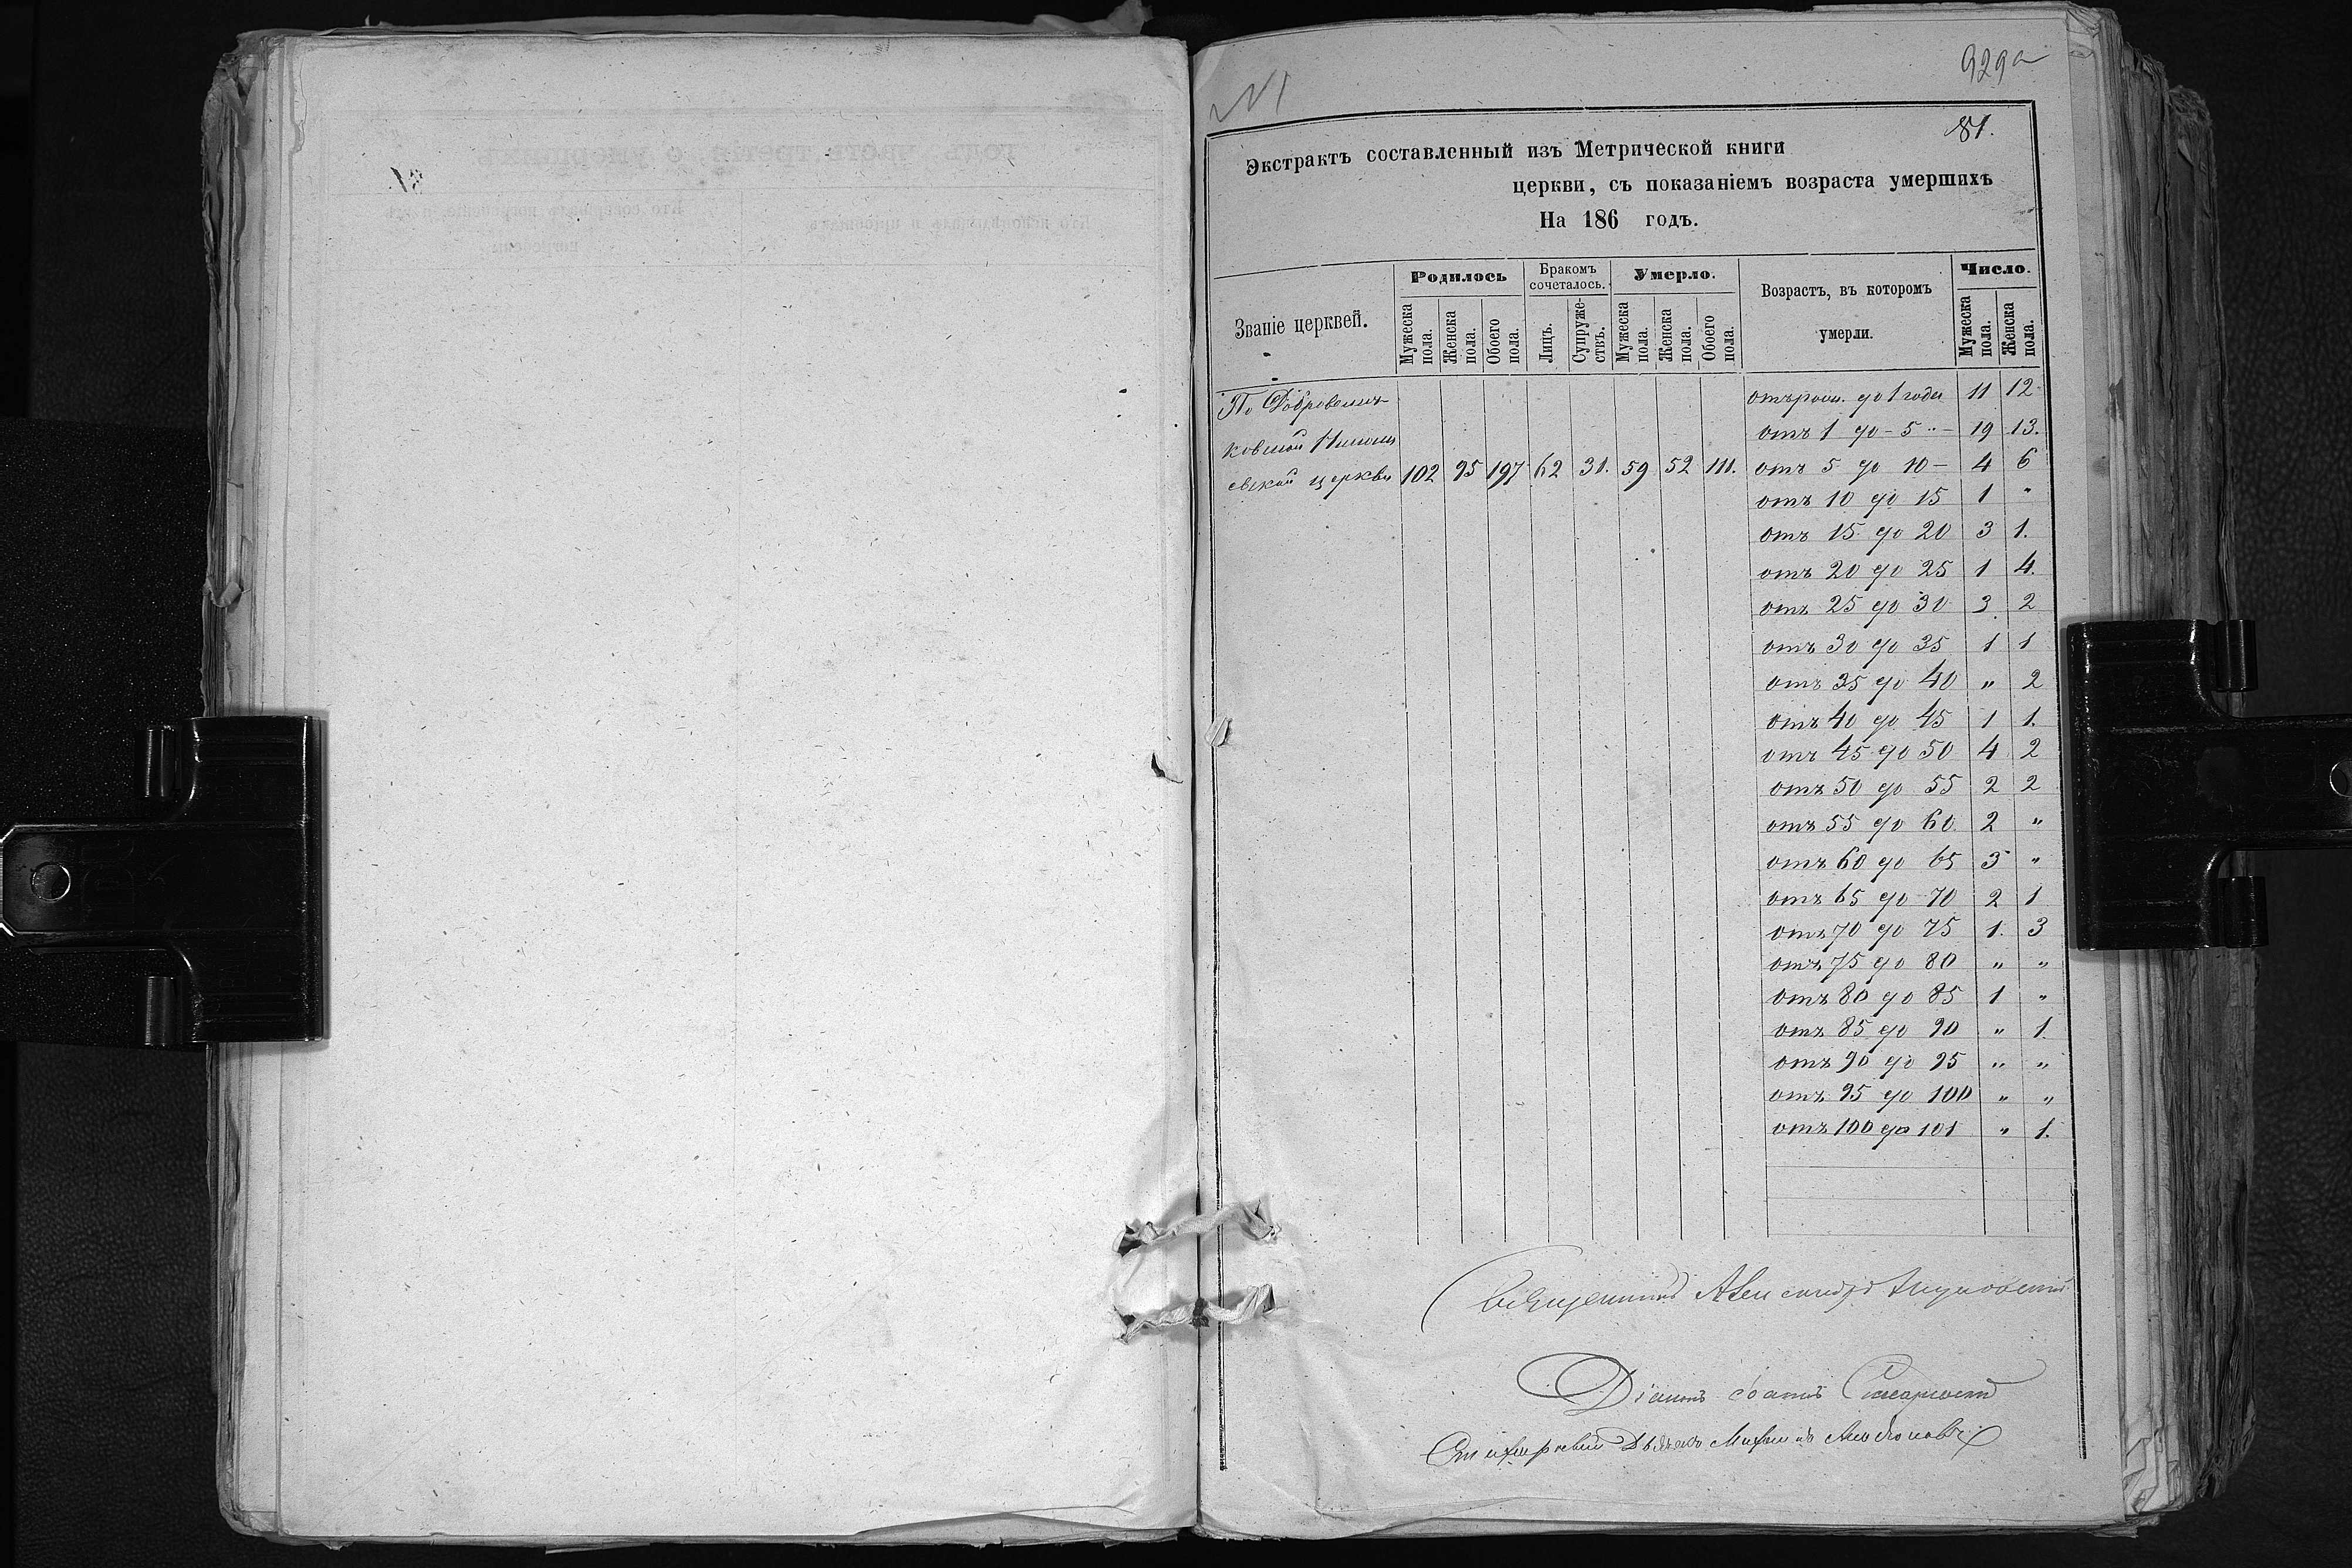 № 1
929а
81.
Экстрактъ составленный изъ Метрической книги
церкви, съ показаніемъ возраста умершихъ
На 186 годъ.
Званіе церквей.
Родилось
Мужеска пола.
Женска пола.
Обоего пола.
Бракомъ сочеталось.
Лицъ.
Супружествъ.
Умерло.
Мужеска пола.
Женска пола.
Обоего пола.
Возрастъ, въ которомъ
умерли.
Число.
Мужеска пола.
Женска пола.
По
евской церкви 102 95 197 62 31. 59 52 111.
отъ рожд. до 1 года 11 12
отъ 1 до - 5 „ - 19 13.
отъ 5 до 10 - 4 6
отъ 10 до 15 1 „
отъ 15 до 20 3 1.
отъ 20 до 25 1 4.
отъ 25 до 30 3 2
отъ 30 до 35 1 1
отъ 35 до 40 „ 2
отъ 40 до 45 1 1.
отъ 45 до 50 4 2
отъ 50 до 55 2 2
отъ 55 до 60 2 „
отъ 60 до 65 3 „
отъ 65 до 70 2 1
отъ 70 до 75 1. 3
отъ 75 до 80 „ „
отъ 80 до 85 1 „
отъ 85 до 90 „ 1.
отъ 90 до 95 „ „
отъ 95 до 100 „ „
отъ 100 до 101 „ 1.
Священникъ Александръ
Діаконъ Іоаннъ